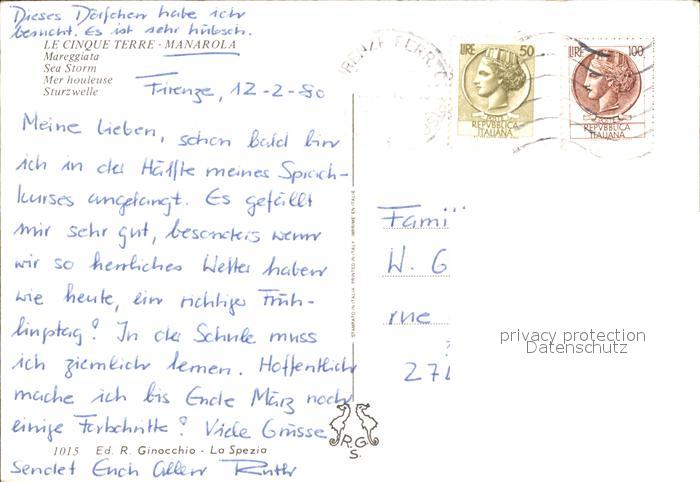 Dieses Dörfchen habe ich
besucht. Es ist sehr hübsch.
LE CINQUE TERRE - MANAROLA
Mareggiata
Sea Storm
Mer houleuse
Sturzwelle
Firenze, 12-2-80
Meine Lieben, schon bald bin
ich in der Hälfte meines Sprach-
kurses angelangt. Es gefällt
mir sehr gut, besonders wenn
wir so herrliches Wetter haben
wie heute, ein richtiger Früh-
lingstag! In der Schule muss
ich ziemlich lernen. Hoffentlich
mache ich bis Ende März noch
einige Fortschritte! Viele Grüsse
1015 Ed. R. Ginocchio - La Spezia
sendet Euch allen Ruth
STAMPATO IN ITALIA PRINTED IN ITALY IMPRIMÉ EN ITALIE
R.G.
S.
LIRE 50
POSTE
REPVBBLICA
ITALIANA
LIRE 100
POSTE
REPVBBLICA
ITALIANA
Fami
W. G
rue
272
privacy protection
Datenschutz